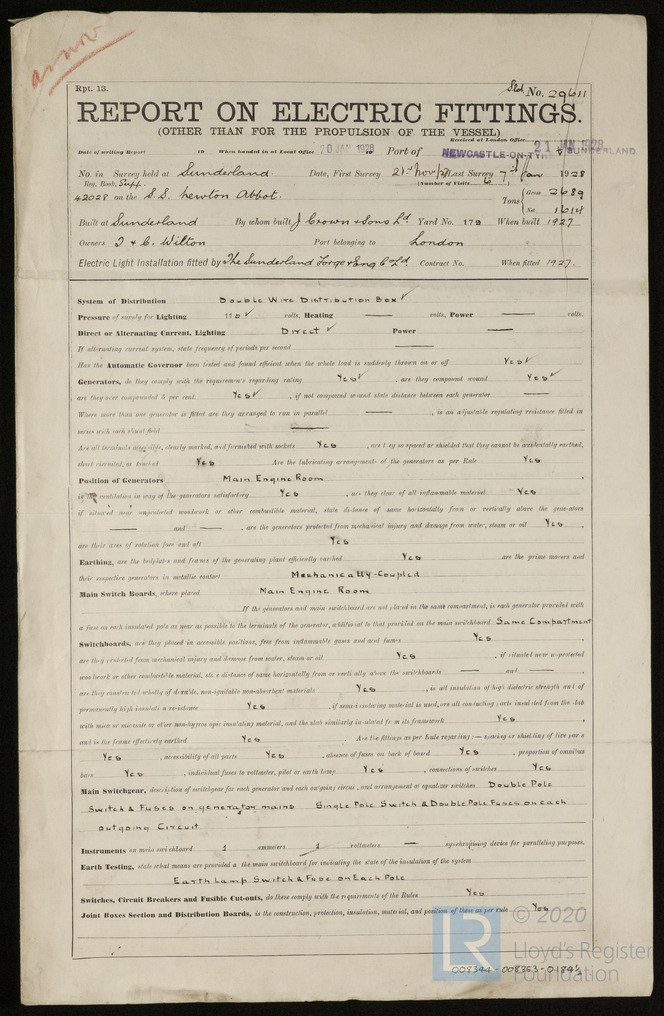 Rpt. 13.
Sld. No. 29611
REPORT ON ELECTRIC FITTINGS.
(OTHER THAN FOR THE PROPULSION OF THE VESSEL)
Received at London Office 21 JAN 1928
Date of writing Report 19 When handed in at Local Office 20 JAN 1928 19 Port of NEWCASTLE-ON-TYNE SUNDERLAND.
No. in Survey held at Sunderland. Date, First Survey 21st Nov/27 Last Survey 7th Jan 1928
Reg. Book. Supp. (Number of Visits 6)
42028 on the S.S. Newton Abbot. Tons { Gross 2689
Net 1614
Built at Sunderland By whom built J Crown & Sons Ld. Yard No. 179 When built 1927
Owners I & C. Wilton Port belonging to London
Electric Light Installation fitted by The Sunderland Forge & Eng Co Ld. Contract No. When fitted 1927.
System of Distribution Double Wire Distribution Box ✓
Pressure of supply for Lighting 110 ✓ volts, Heating — volts, Power — volts.
Direct or Alternating Current, Lighting Direct ✓ Power —
If alternating current system, state frequency of periods per second —
Has the Automatic Governor been tested and found efficient when the whole load is suddenly thrown on or off Yes ✓
Generators, do they comply with the requirements regarding rating Yes ✓, are they compound wound Yes ✓
are they over compounded 5 per cent. Yes ✓, if not compound wound state distance between each generator —
Where more than one generator is fitted are they arranged to run in parallel —, is an adjustable regulating resistance fitted in
series with each shunt field —
Are all terminals accessible, clearly marked, and furnished with sockets Yes, are they so spaced or shielded that they cannot be accidentally earthed,
short circuited, or touched Yes Are the lubricating arrangements of the generators as per Rule Yes
Position of Generators Main Engine Room
is the ventilation in way of the generators satisfactory Yes, are they clear of all inflammable material Yes
if situated near unprotected woodwork or other combustible material, state distance of same horizontally from or vertically above the generators
— and —, are the generators protected from mechanical injury and damage from water, steam or oil Yes,
are their axes of rotation fore and aft Yes
Earthing, are the bedplates and frames of the generating plant efficiently earthed Yes are the prime movers and
their respective generators in metallic contact Mechanically-Coupled
Main Switch Boards, where placed Main Engine Room
If the generators and main switchboard are not placed in the same compartment, is each generator provided with
a fuse on each insulated pole as near as possible to the terminals of the generator, additional to that provided on the main switchboard Same Compartment
Switchboards, are they placed in accessible positions, free from inflammable gases and acid fumes Yes
are they protected from mechanical injury and damage from water, steam or oil Yes, if situated near unprotected
woodwork or other combustible material, state distance of same horizontally from or vertically above the switchboards — and —,
are they constructed wholly of durable, non-ignitable non-absorbent materials Yes, is all insulation of high dielectric strength and of
permanently high insulation resistance Yes, if semi-insulating material is used, are all conducting parts insulated from the slab
with mica or micanite or other non-hygroscopic insulating material, and the slab similarly insulated from its framework Yes,
and is the frame effectively earthed Yes. Are the fittings as per Rule regarding :— spacing or shielding of live parts
Yes, accessibility of all parts Yes, absence of fuses on back of board Yes, proportion of omnibus
bars Yes, individual fuses to voltmeter, pilot or earth lamp Yes, connections of switches Yes
Main Switchgear, description of switchgear for each generator and each outgoing circuit, and arrangement of equalizer switches Double Pole
Switch & Fuses on generator mains Single Pole Switch & Double Pole Fuses on each
outgoing Circuit
Instruments on main switchboard 1 ammeters 1 voltmeters — synchronising device for paralleling purposes.
Earth Testing, state what means are provided at the main switchboard for indicating the state of the insulation of the system
Earth Lamp Switch & Fuse on Each Pole
Switches, Circuit Breakers and Fusible Cut-outs, do these comply with the requirements of the Rules Yes
Joint Boxes Section and Distribution Boards, is the construction, protection, insulation, material, and position of these as per rule Yes
© 2020
LR
Lloyd's Register
Foundation
008344-008353-0184½